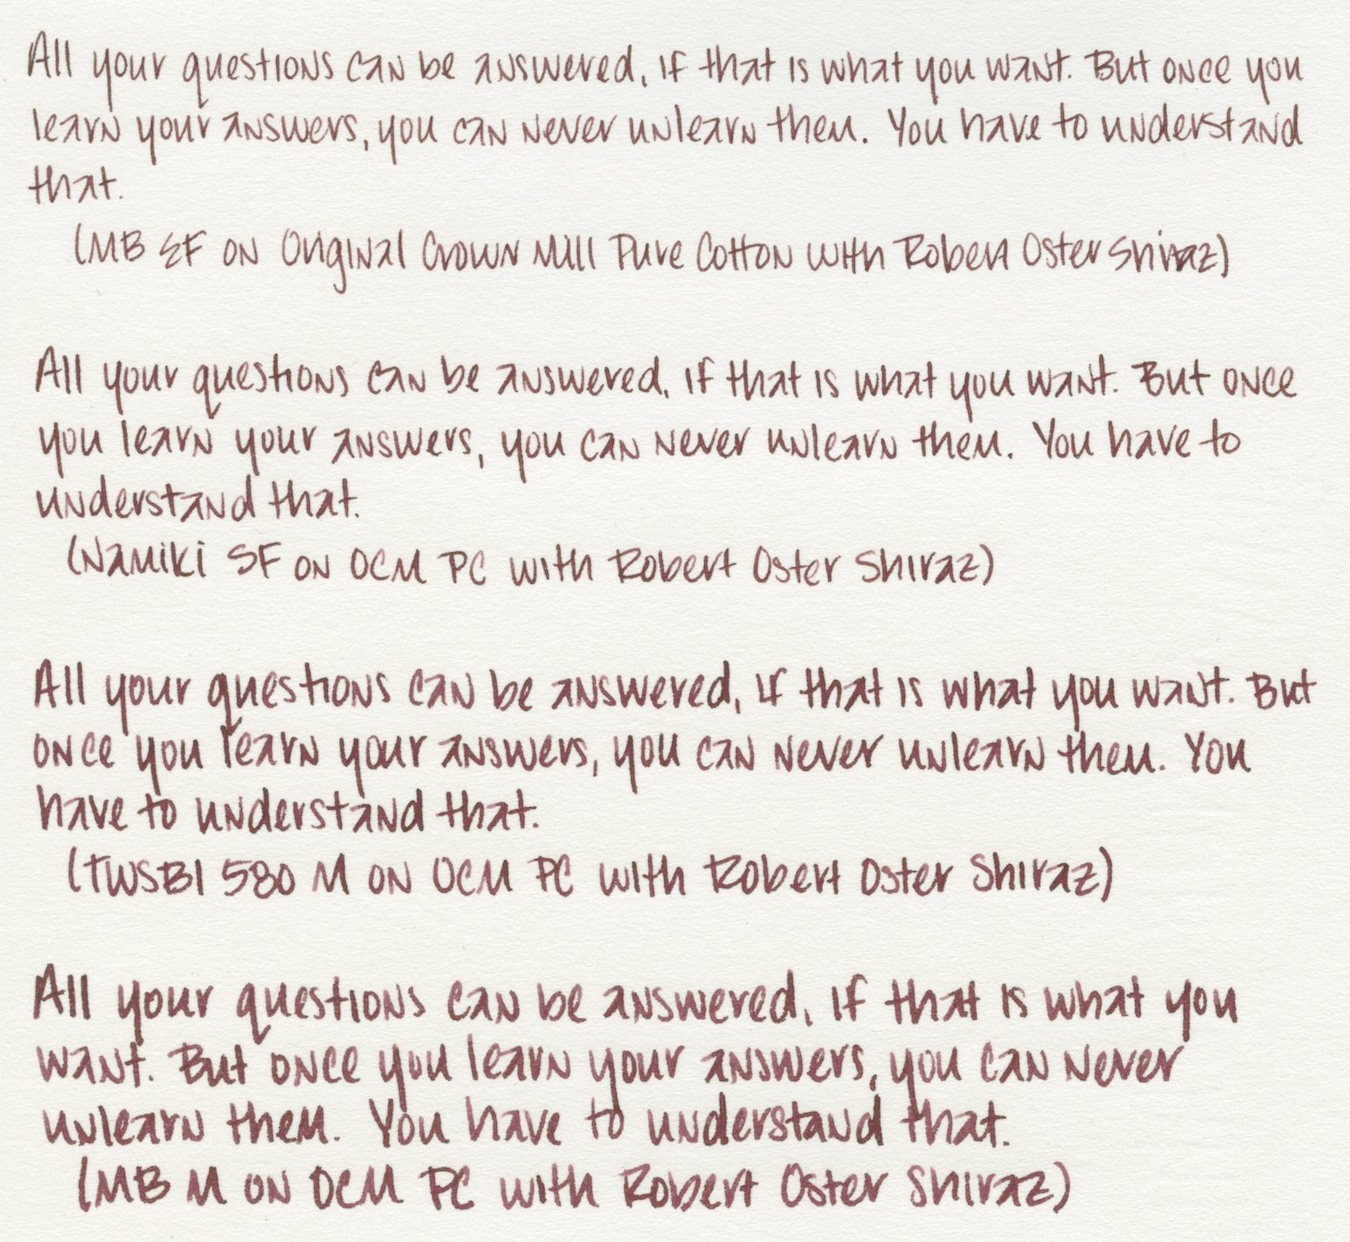 All your questions can be answered, if that is what you want. But once you
learn your answers, you can never unlearn them. You have to understand
that.
(MB EF on Original Crown Mill Pure Cotton with Robert Oster Shiraz)
All your questions can be answered, if that is what you want. But once
you learn your answers, you can never unlearn them. You have to
understand that.
(Namiki SF on OCM PC with Robert Oster Shiraz)
All your questions can be answered, if that is what you want. But
once you learn your answers, you can never unlearn them. You
have to understand that.
(TWSBI 580 M on OCM PC with Robert Oster Shiraz)
All your questions can be answered, if that is what you
want. But once you learn your answers, you can never
unlearn them. You have to understand that.
(MB M on OCM PC with Robert Oster Shiraz)